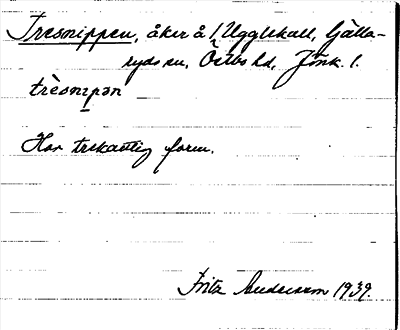 Tresnippen, åker å 1 Ugglekull, Gälla-
ryds sn, Östbo hd, Jönk. l.
trèsnı̣pən
Har trekantig form.
Fritz Andersson 1939.